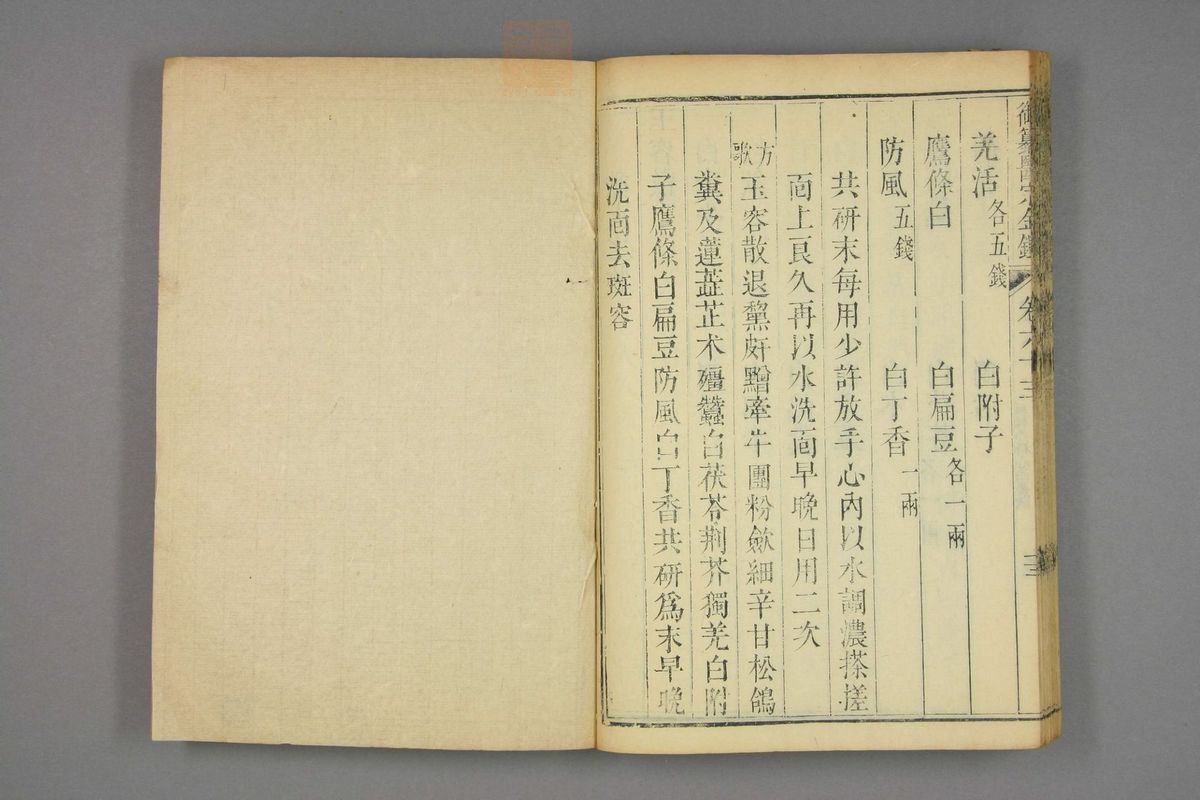 御纂醫宗金鑑 卷六十三
羌活各五錢 白附子
鷹條白 白扁豆各一兩
防風五錢 白丁香一兩
共研末每用少許放手心內以水調濃搽搓
面上良久再以水洗面早晚日用二次
方歌 玉容散退黧䵟黵牽牛團粉歛細辛甘松鴿
糞及蓮蕋芷术殭蠶白茯苓荆芥獨羌白附
子鷹條白扁豆防風白丁香共研爲末早晚
洗面去斑容